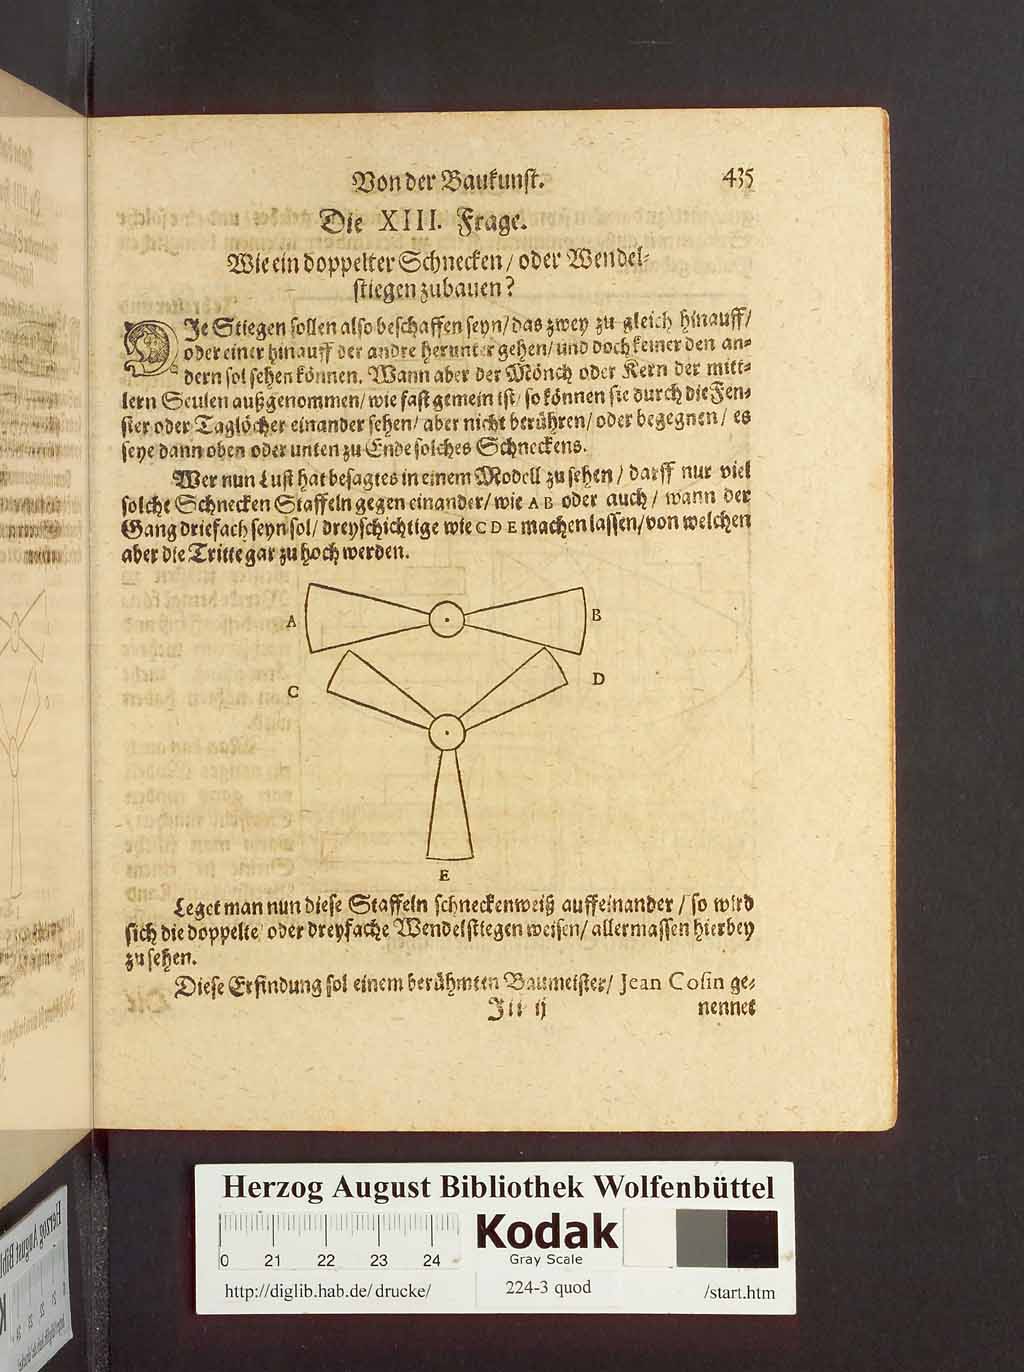 Von der Baukunst. 435
Die XIII. Frage.
Wie ein doppelter Schnecken / oder Wendel-
stiegen zubauen?
DJe Stiegen sollen also beschaffen seyn / das zwey zu gleich hinauff /
oder einer hinauff der andre herunter gehen / und doch keiner den an-
dern sol sehen können. Wann aber der Mönch oder Kern der mitt-
lern Seulen außgenommen / wie fast gemein ist / so können sie durch die Fen-
ster oder Taglöcher einander sehen / aber nicht berühren / oder begegnen / es
seye dann oben oder unten zu Ende solches Schneckens.
Wer nun Lust hat besagtes in einem Modell zu sehen / darff nur viel
solche Schnecken Staffeln gegen einander / wie A B oder auch / wann der
Gang driefach seyn sol / dreyschichtige wie C D E machen lassen / von welchen
aber die Tritte gar zu hoch werden.
A B
C D
E
Leget man nun diese Staffeln schneckenweiß auffeinander / so wird
sich die doppelte oder dreyfache Wendelstiegen weisen / allermassen hierbey
zu sehen.
Diese Erfindung sol einem berühmten Baumeister / Jean Cosin ge-
Jii ij nennet
Herzog August Bibliothek Wolfenbüttel
0 21 22 23 24
Kodak
Gray Scale
http://diglib.hab.de/drucke/ 224-3 quod /start.htm